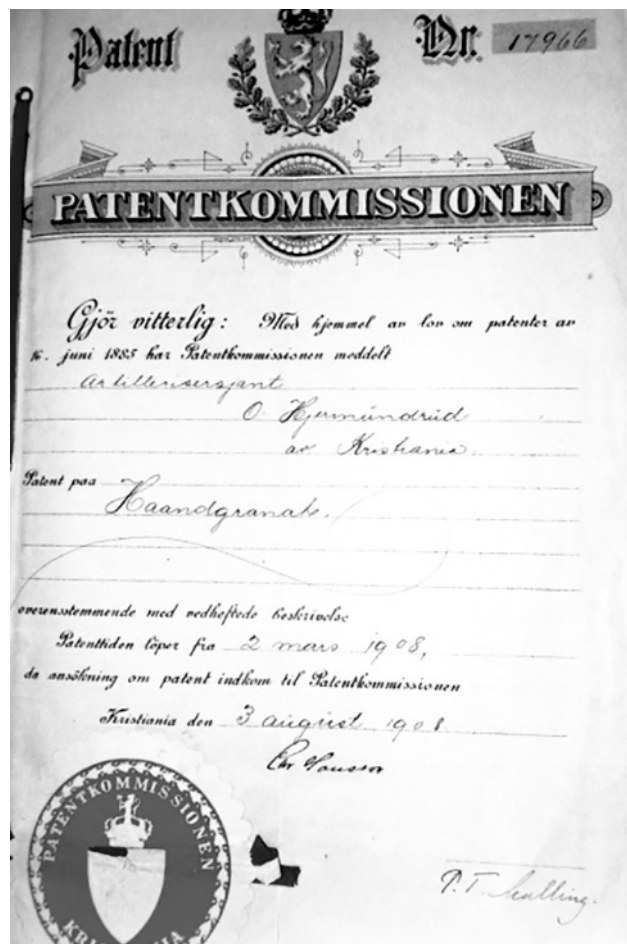 Patent Nr. 17966
PATENTKOMMISSIONEN
Gjör vitterlig: Med hjemmel av lov om patenter av
16. juni 1885 har Patentkommissionen meddelt
Artillerisersjant
O. Hjermundrud
av Kristiania
Patent paa
Haandgranat.
overensstemmende med vedheftede beskrivelse
Patenttiden löper fra 2 mars 1908,
da ansökning om patent indkom til Patentkommissionen
Kristiania den 3 august 1908
PATENTKOMMISSIONEN
P. T.